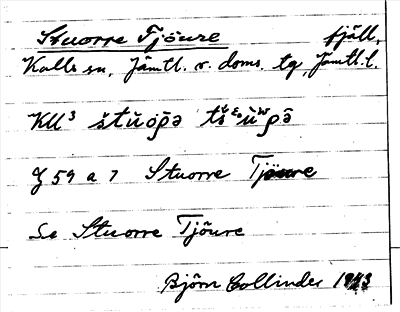 Stuorre Tjöure fjäll,
Kalls sn, Jämtl. v. doms. tg, Jämtl. l.
KU³
J 59 a 7 Stuorre Tjöure
Se Stuorre Tjöure
Björn Collinder 1943